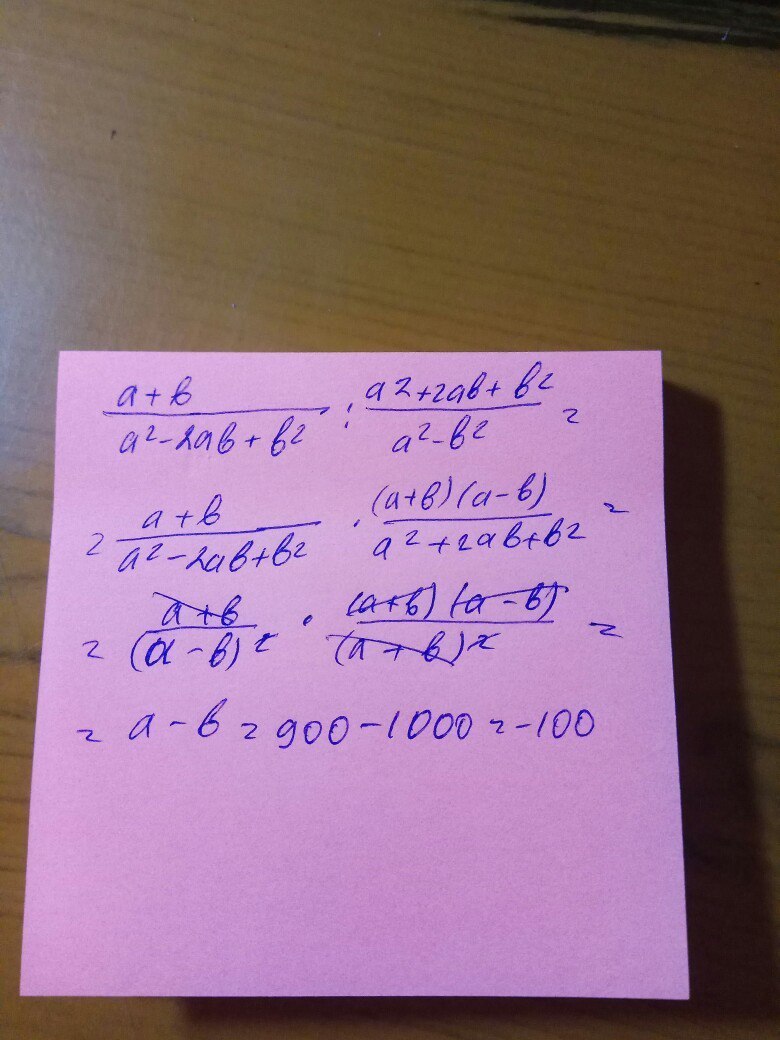 a+b / a²-2ab+b² : a²+2ab+b² / a²-b² =
= a+b / a²-2ab+b² · (a+b)(a-b) / a²+2ab+b² =
= a+b / (a-b)² · (a+b)(a-b) / (a+b)² =
= a-b = 900-1000 = -100